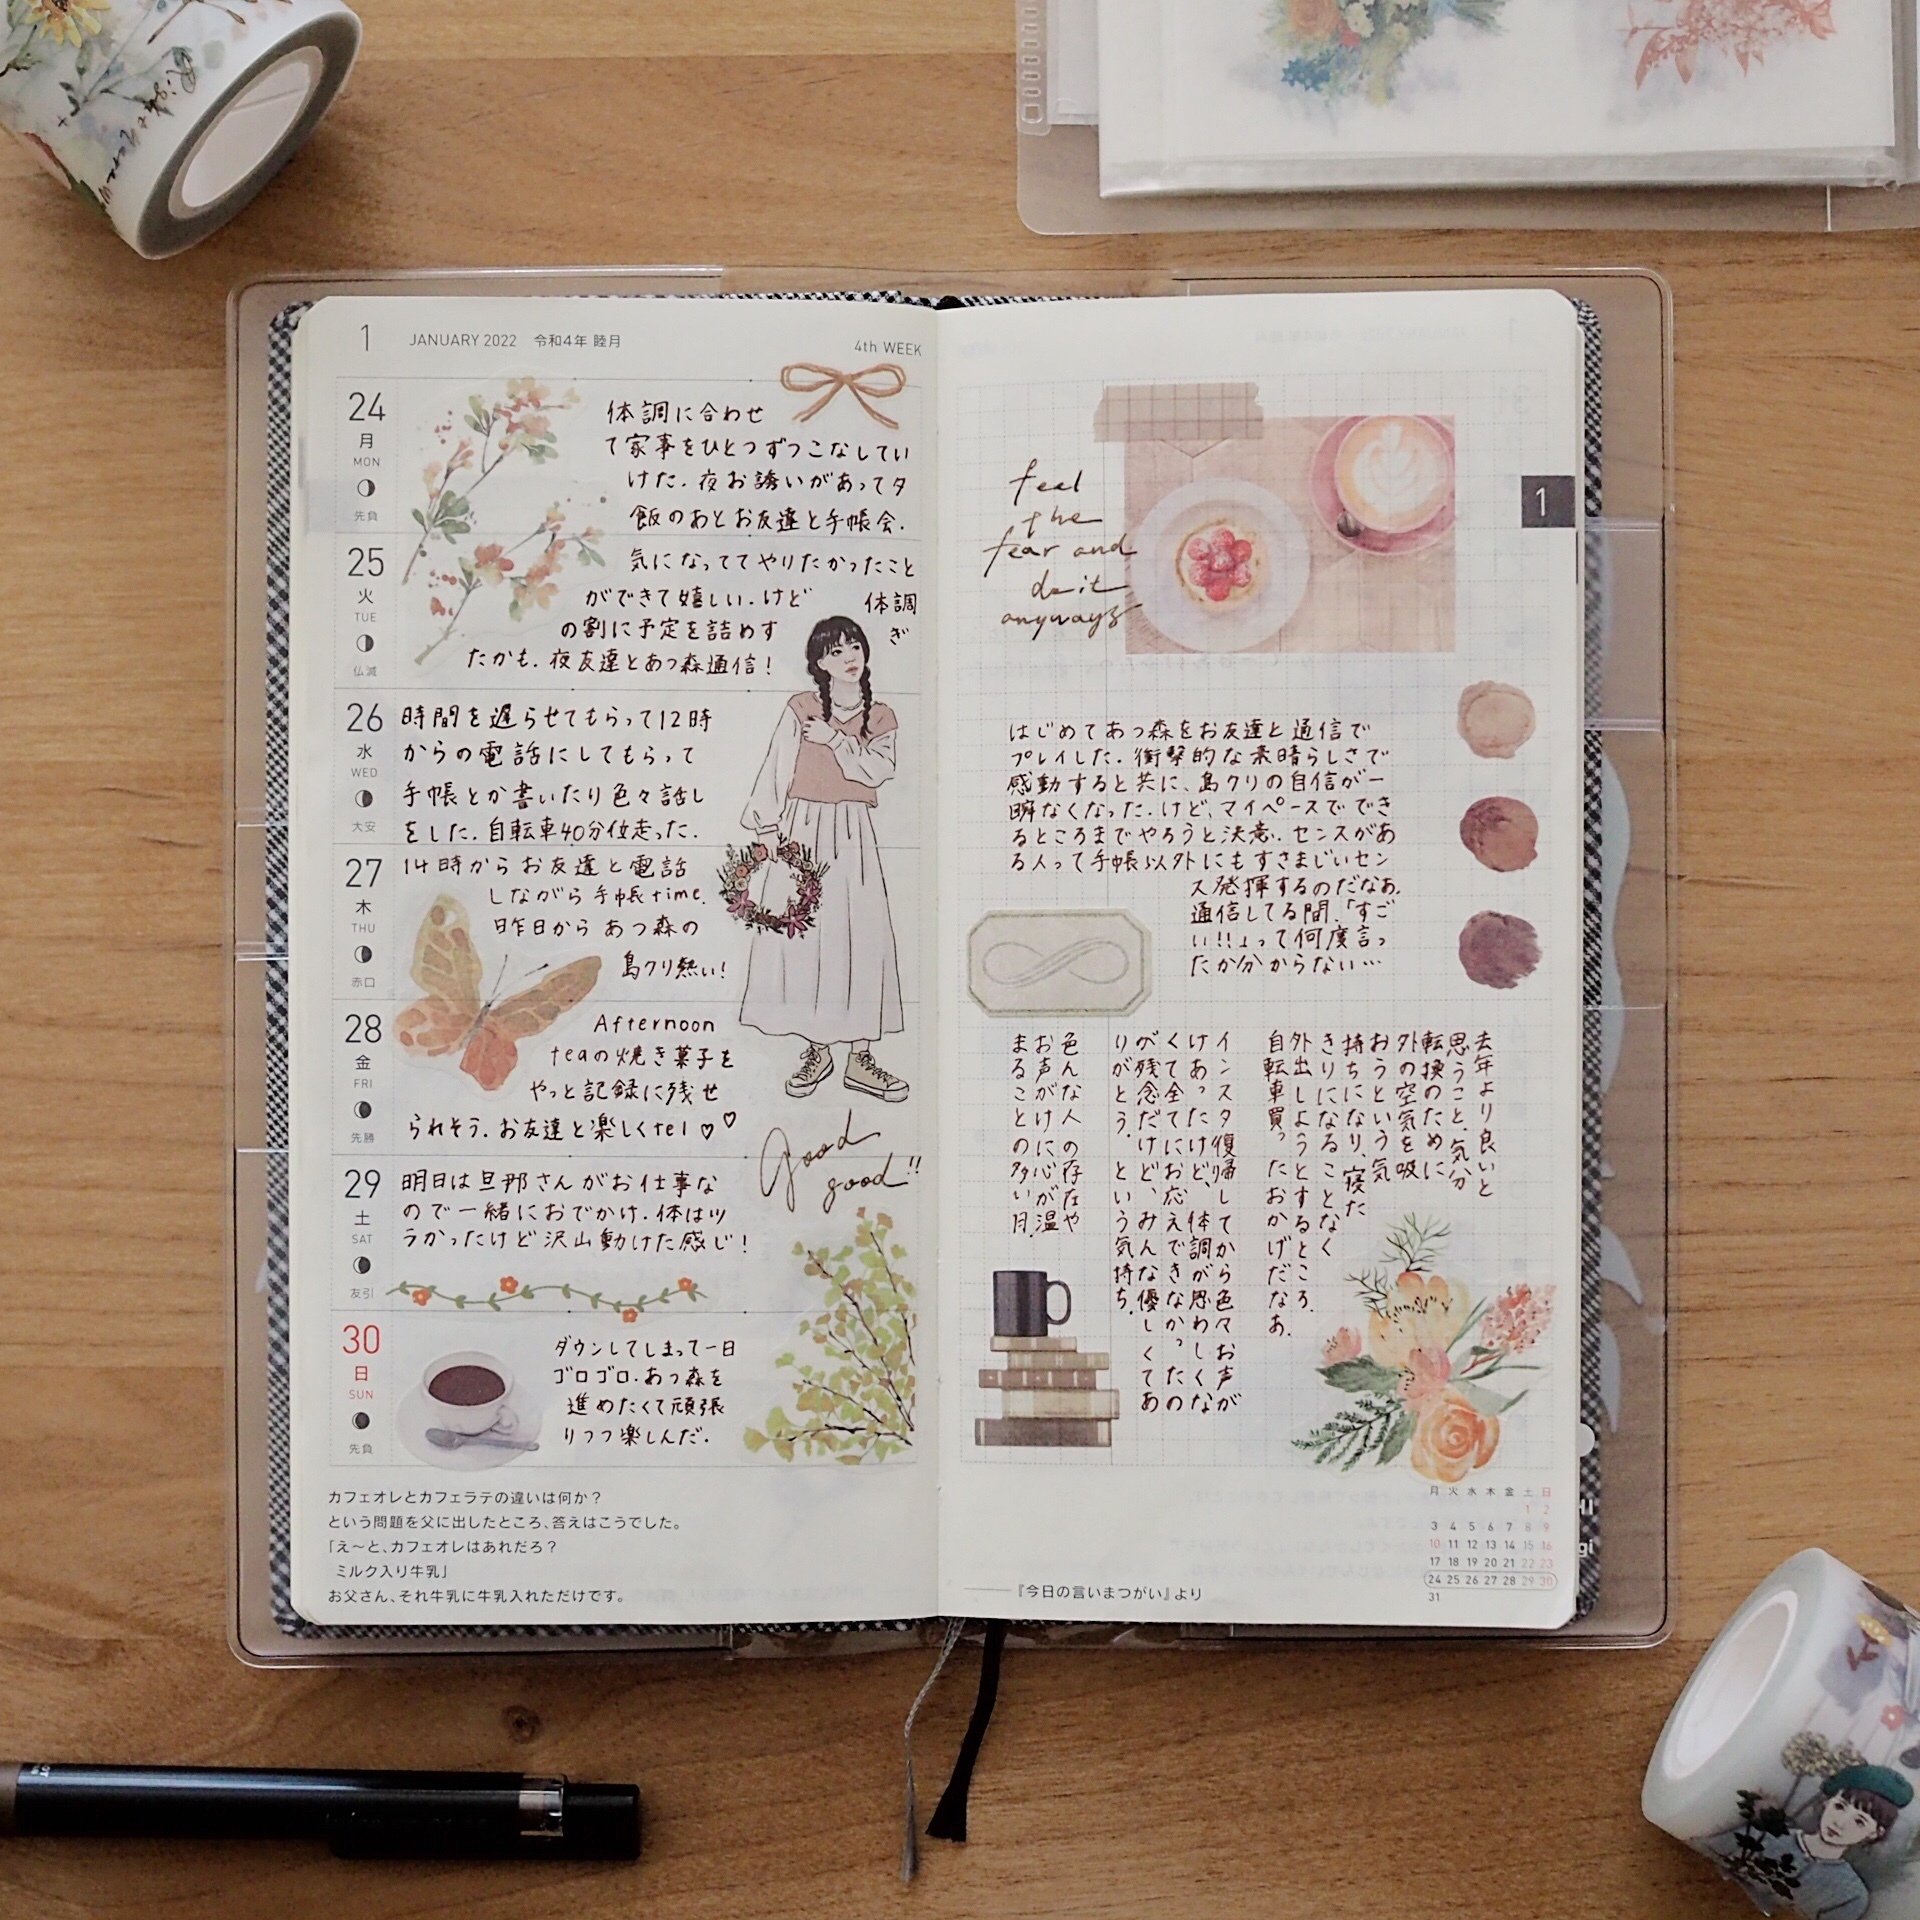 1 JANUARY 2022 令和4年 睦月
4th WEEK
24
月
MON
先負
体調に合わせ
て家事をひとつずつこなしてい
けた.夜お誘いがあって夕
飯のあとお友達と手帳会.
25
火
TUE
仏滅
気になっててやりたかったこと
ができて嬉しい.けど 体調
の割に予定を詰めす ぎ
たかも.夜友達とあつ森通信!
26
水
WED
大安
時間を遅らせてもらって12時
からの電話にしてもらって
手帳とか書いたり色々話し
をした.自転車40分位走った.
27
木
THU
赤口
14時からお友達と電話
しながら手帳time.
昨日からあつ森の
島クリ熱い!
28
金
FRI
先勝
Afternoon
teaの焼き菓子を
やっと記録に残せ
られそう.お友達と楽しくtel♡♡
Good
good!!
29
土
SAT
友引
明日は旦那さんがお仕事な
ので一緒におでかけ.体はツ
ラかったけど沢山動けた感じ!
30
日
SUN
先負
ダウンしてしまって一日
ゴロゴロ.あつ森を
進めたくて頑張
りつつ楽しんだ.
カフェオレとカフェラテの違いは何か?
という問題を父に出したところ、答えはこうでした。
「え〜と、カフェオレはあれだろ?
ミルク入り牛乳」
お父さん、それ牛乳に牛乳入れただけです。
feel
the
fear and
do it
anyways
1
はじめてあつ森をお友達と通信で
プレイした.衝撃的な素晴らしさで
感動すると共に、島クリの自信が一
瞬なくなった.けど、マイペースででき
るところまでやろうと決意.センスがあ
る人って手帳以外にもすさまじいセン
ス発揮するのだなあ.
通信してる間.「すご
い!!」って何度言っ
たか分からない…
去年より良いと
思うこと.気分
転換のために
外の空気を吸
おうという気
持ちになり、寝た
きりになることなく
外出しようとするところ.
自転車買ったおかげだなあ.
インスタ復帰してから色々お声が
けあったけど、体調が思わしくな
くて全てにお応えできなかったの
が残念だけど、みんな優しくてあ
りがとう.という気持ち.
色んな人の存在や
お声がけに心が温
まることの多い月.
月 火 水 木 金 土 日
1 2
3 4 5 6 7 8 9
10 11 12 13 14 15 16
17 18 19 20 21 22 23
24 25 26 27 28 29 30
31
『今日の言いまつがい』より